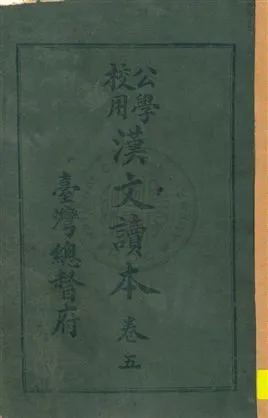 公學校用
漢文讀本
卷五
臺灣總督府